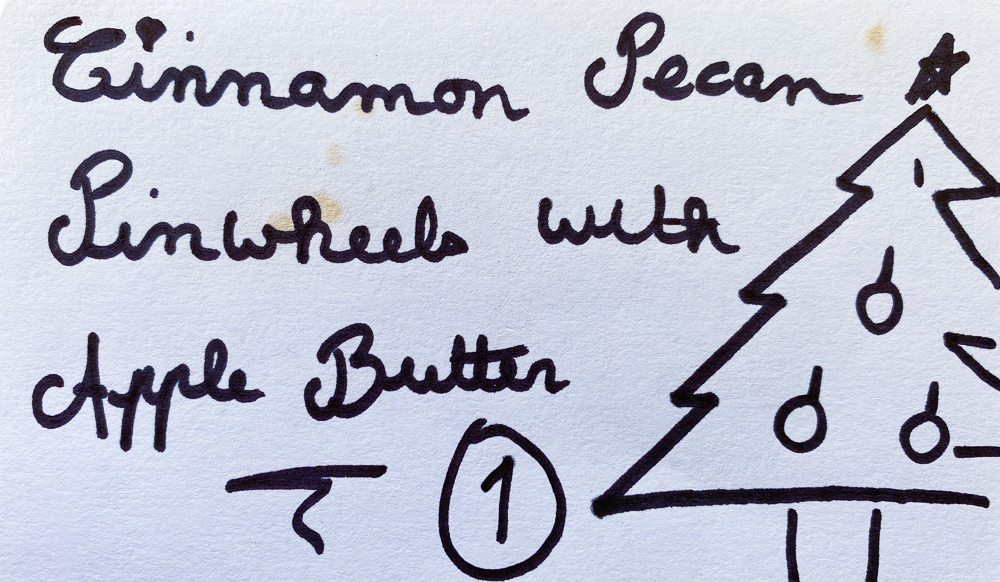 Cinnamon Pecan
Pinwheels with
Apple Butter
1